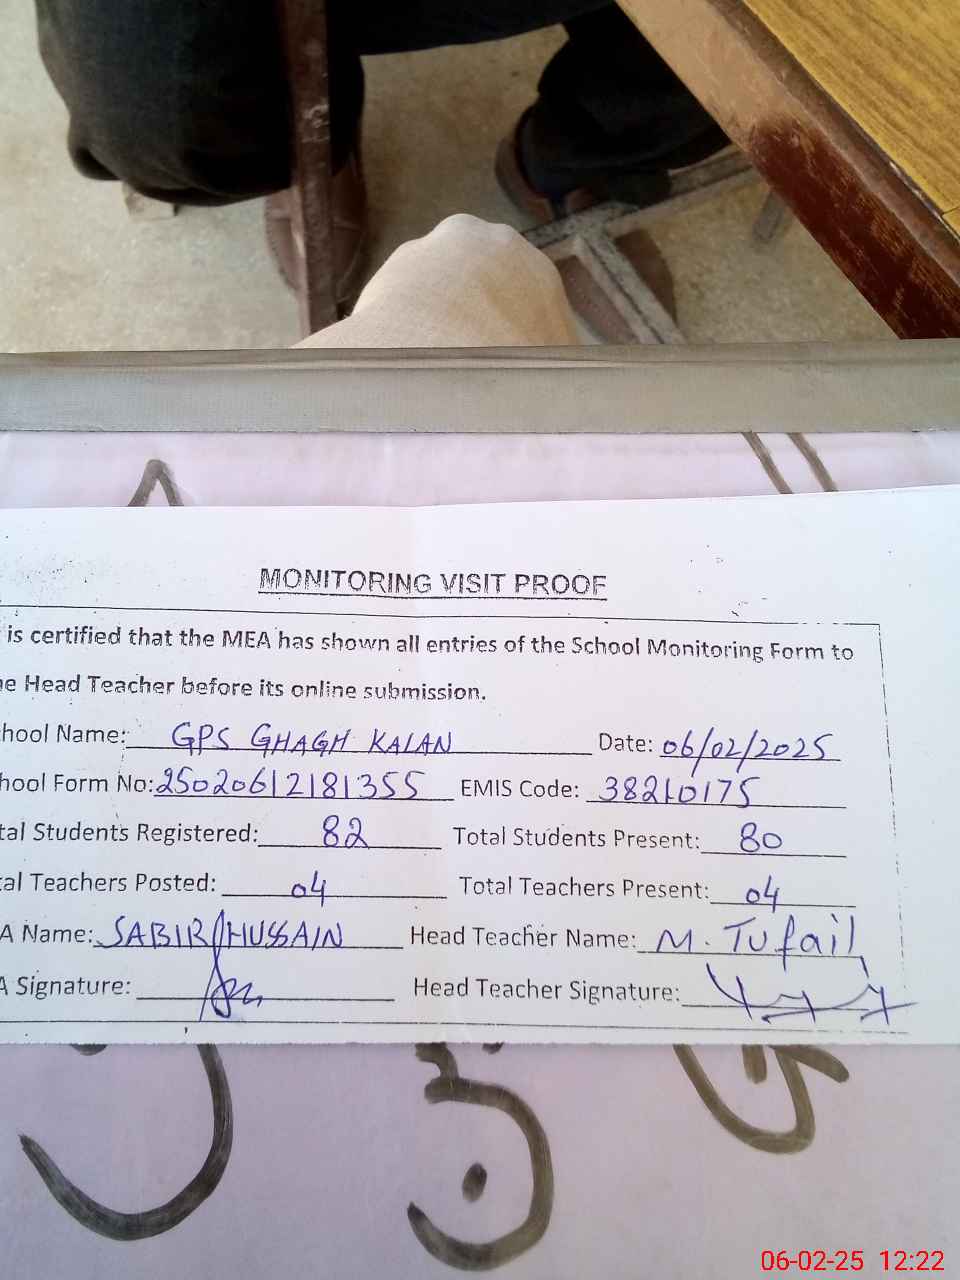 MONITORING VISIT PROOF
is certified that the MEA has shown all entries of the School Monitoring Form to
e Head Teacher before its online submission.
hool Name: GPS GHAGH KALAN Date: 06/02/2025
hool Form No: 25020612181355 EMIS Code: 38210175
tal Students Registered: 82 Total Students Present: 80
al Teachers Posted: 04 Total Teachers Present: 04
A Name: SABIR HUSSAIN Head Teacher Name: M. Tufail
A Signature: Head Teacher Signature:
06-02-25 12:22